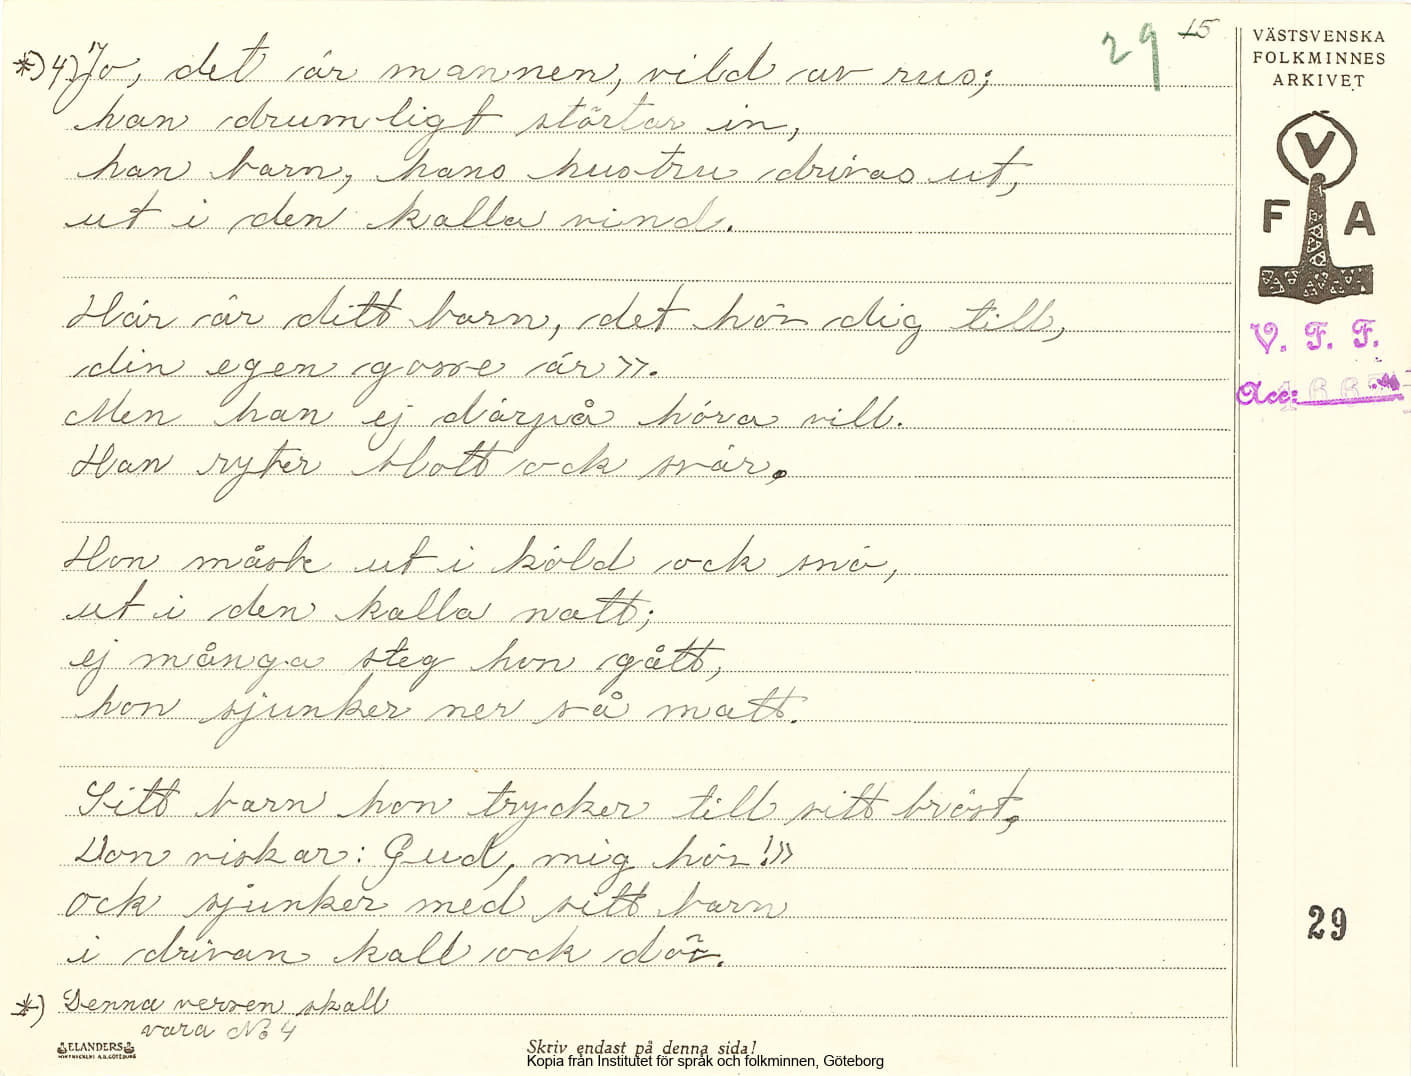 29 15
VÄSTSVENSKA
FOLKMINNES
ARKIVET
V
F A
V. F. F.
Acc:
*) 4) Jo, det är mannen, vild av rus;
han drumligt störtar in,
han barn, hans hustru drivas ut,
ut i den kalla vind.
Här är ditt barn, det hör dig till,
din egen gosse är».
Men han ej därpå höra vill.
Han ryter blott ock svär,
Hon måste ut i köld ock snö,
ut i den kalla natt;
ej många steg hon gått,
hon sjunker ner så matt.
Sitt barn hon trycker till sitt bröst,
Hon viskar: Gud, mig hör!»
ock sjunker med sitt barn
i drivan kall ock dör.
29
*) Denna versen skall
vara No 4
ELANDERS
Skriv endast på denna sida!
Kopia från Institutet för språk och folkminnen, Göteborg